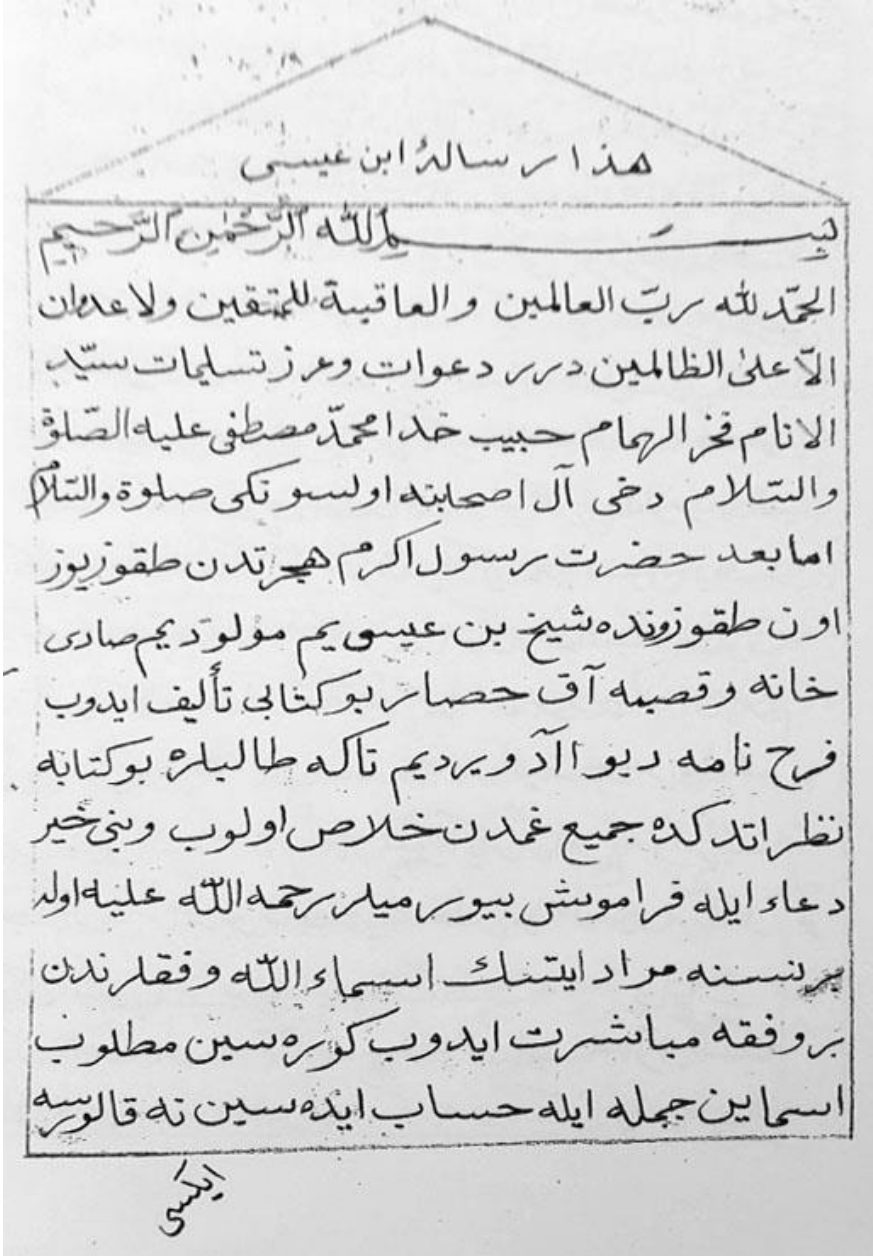 هذا رسالهٔ ابن عيسى
بِسْمِ اللّٰه الرَّحْمٰنِ الرَّحيمِ
الحمّد لله ربّ العالمين والعاقبة للمتقين ولا عدوان
الاّ على الظالمين درر دعوات وعرز تسليمات سيّد
الانام فخر الهمام حبيب خدا محمّد مصطفى عليه الصّلوة
والسّلام دخى آل اصحابنه اولسونكى صلوة والسّلام
اما بعد حضرت رسول اكرم هجرتدن طقوز يوز
اون طقوزونده شيخ بن عيسى يم مولوديم صادى
خانه وقصبه آق حصار بو كتابى تأليف ايدوب
فرح نامه ديو اآد ويرديم تاكه طالبلره بو كتابه
نظر اتدكده جميع غمدن خلاص اولوب وبنى خير
دعاء ايله فراموش بيورميلر رحمه اللّه عليه اوله
بر نسنه مراد ايتسك اسماء اللّه وفقلرندن
بر وفقه مباشرت ايدوب كوره سين مطلوب
اسماين جمله ايله حساب ايده سين نه قالورسه
ايكسى